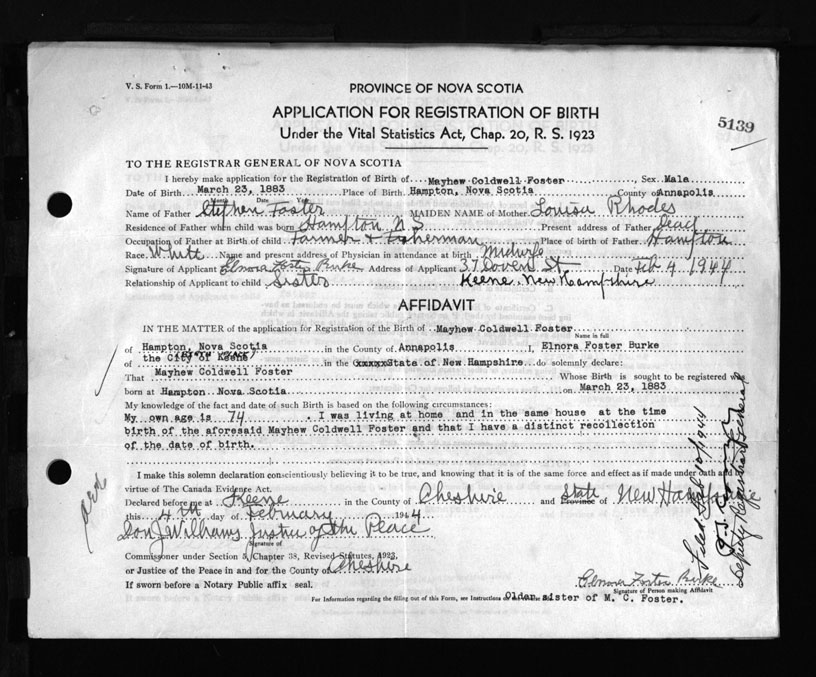 V. S. Form 1.—10M-11-43
PROVINCE OF NOVA SCOTIA
APPLICATION FOR REGISTRATION OF BIRTH
5139
Under the Vital Statistics Act, Chap. 20, R. S. 1923
TO THE REGISTRAR GENERAL OF NOVA SCOTIA
I hereby make application for the Registration of Birth of Mayhew Coldwell Foster Sex Male
Date of Birth March 23, 1883 Place of Birth Hampton, Nova Scotia County of Annapolis
Month Date Year
Name of Father Stephen Foster MAIDEN NAME of Mother Louisa Rhodes
Residence of Father when child was born Hampton N S Present address of Father Dead
Occupation of Father at Birth of child Farmer & Fisherman Place of birth of Father Hampton
Race White Name and present address of Physician in attendance at birth Midwife
Signature of Applicant Elnora Foster Burke Address of Applicant 37 St Date Feb 4 1944
Relationship of Applicant to child Sister Keene New Hampshire
AFFIDAVIT
IN THE MATTER of the application for Registration of the Birth of Mayhew Coldwell Foster
Name in full
of Hampton, Nova Scotia in the County of Annapolis I, Elnora Foster Burke
of the City of Keene in the xxxxxState of New Hampshire do solemnly declare:
That Mayhew Coldwell Foster Whose Birth is sought to be registered was
born at Hampton Nova Scotia on March 23, 1883
My knowledge of the fact and date of such Birth is based on the following circumstances:
My own age is 74 . I was living at home and in the same house at the time
birth of the aforesaid Mayhew Coldwell Foster and that I have a distinct recollection
of the date of birth.
I make this solemn declaration conscientiously believing it to be true, and knowing that it is of the same force and effect as if made under oath and by
virtue of The Canada Evidence Act.
Declared before me at Keene in the County of Cheshire and State Province of New Hampshire
this 4th day of February 1944
Don J Williams Justice of the Peace
Signature of
Commissioner under Section 5, Chapter 38, Revised Statutes, 1923,
or Justice of the Peace in and for the County of Cheshire
If sworn before a Notary Public affix seal.
Elnora Foster Burke
Signature of Person making Affidavit
For Information regarding the filling out of this Form, see Instructions on
Older sister of M. C. Foster.
Filed Feb 1944
Deputy Registrar General